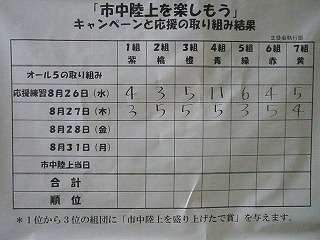 「市中陸上を楽しもう」
キャンペーンと応援の取り組み結果
生徒会執行部
1組 2組 3組 4組 5組 6組 7組
紫 桃 橙 青 緑 赤 黄
オール5の取り組み
応援練習8月26日(水) 4 3 5 11 6 4 5
8月27日(木) 3 5 5 5 3 5 4
8月28日(金)
8月31日(月)
市中陸上当日
合計
順位
*1位から3位の組団に「市中陸上を盛り上げたで賞」を与えます。